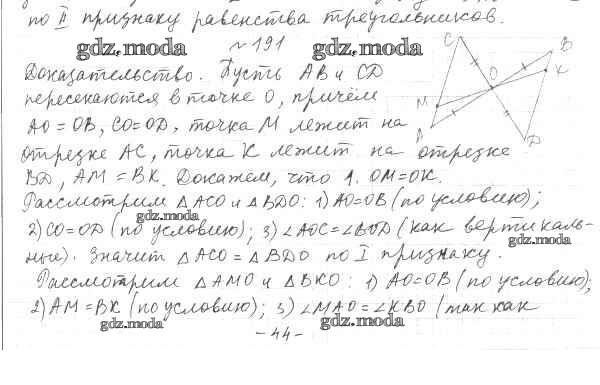 по II признаку равенства треугольников.
gdz.moda № 191 gdz.moda
Доказательство. Пусть AB и CD
пересекаются в точке O, причём
AO = OB, CO = OD, точка M лежит на
отрезке AC, точка K лежит на отрезке
BD, AM = BK. Докажем, что 1. OM = OK.
Рассмотрим △ACO и △BDO: 1) AO = OB (по условию);
gdz.moda
2) CO = OD (по условию); 3) ∠AOC = ∠BOD (как вертикаль-
gdz.moda
ные). Значит △ACO = △BDO по I признаку.
Рассмотрим △AMO и △BKO: 1) AO = OB (по условию);
2) AM = BK (по условию); 3) ∠MAO = ∠KBO (так как
gdz.moda gdz.moda
- 44 -
C
B
O
K
M
A
D